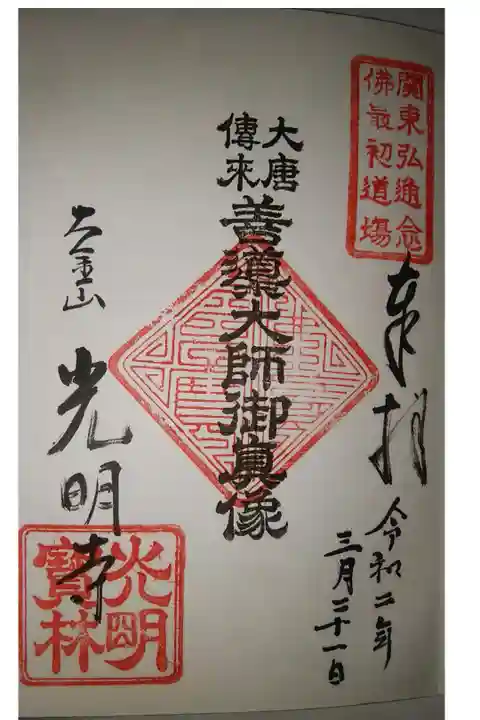 關東弘通念
佛最初道場
奉拝
令和二年
三月三十一日
大唐
傳來
善導大師御真像
天童山
光明寺
光明
寶林